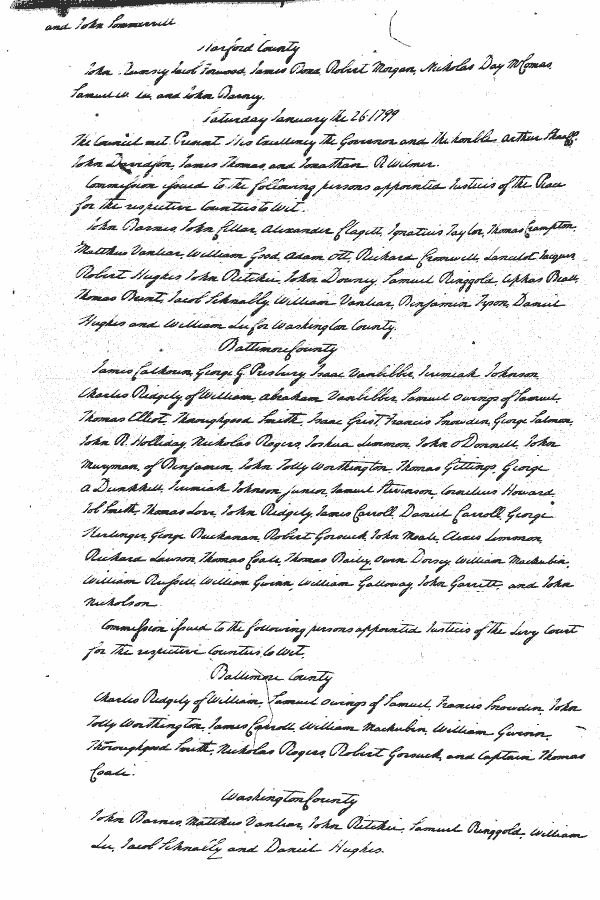 and John Sommervill
Harford County
John Rumsey Jacob Forwood, James Bond, Robert Morgan, Nicholas Day McComas,
Samuel W. Lee, and John Barney.
Saturday January the 26 1799
The Council met. Present His Excellency the Governor and the honble Arthur Shaaff,
John Davidson, James Thomas, and Jonathan R Wilmer.
Commission issued to the following persons appointed Justices of the Peace
for the respective Counties to Wit.
John Barnes, John Cellar, Alexander Clagett, Ignatius Taylor, Thomas Crampton,
Matthew Vanlear, William Good, Adam Ott, Richard Cromwell, Lancelot Jacques
Robert Hughes John Ritchie, John Downey Samuel Ringgold, Cephas Beall,
Thomas Brent, Jacob Schnably, William Vanlear, Benjamin Tyson, Daniel
Hughes and William Lee for Washington County.
Baltimore County
James Calhoun, George G Presbury Isaac Vanbibber, Jeremiah Johnson
Charles Ridgely of William, Abraham Vanbibber, Samuel Owings of Samuel,
Thomas Elliot, Thoroughgood Smith, Isaac Grist, Francis Snowden, George Salmon,
John R. Holliday, Nicholas Rogers, Joshua Lemmon, John O Donnell, John
Merryman, of Benjamin, John Tolly Worthington, Thomas Gittings, George
A Dunkkell, Jeremiah Johnson junior, Samuel Stevenson, Cornelius Howard
Job Smith, Thomas Love, John Ridgely, James Carroll, Daniel Carroll, George
Herlinger, George Buchanan, Robert Gorsuck, John Moale, Alexis Lemmon,
Richard Lawson, Thomas Coale, Thomas Bailey, Owen Dorsey William Mackubin,
William Russell, William Gwinn, William Galloway, John Garrett, and John
Nicholson
Commission issued to the following persons appointed Justices of the Levy Court
for the respective Counties to Wit,
Baltimore County
Charles Ridgely of William, Samuel Owings of Samuel, Francis Snowden, John
Tolly Worthington, James Carroll, William Mackubin, William Gwinn,
Thoroughgood Smith, Nicholas Rogers, Robert Gorsuck, and Captain Thomas
Coale.
Washington County
John Barnes, Matthew Vanlear, John Ritchie, Samuel Ringgold, William
Lee, Jacob Schnably and Daniel Hughes.